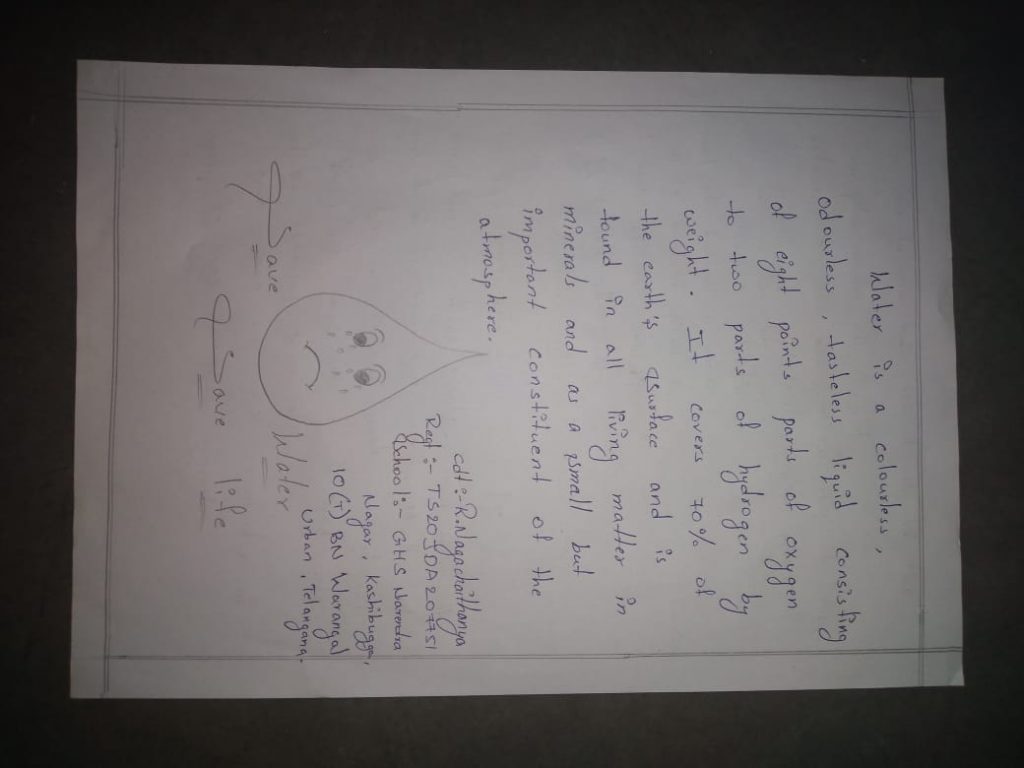 Water is a colourless,
odourless, tasteless liquid consisting
of eight points parts of oxygen
to two parts of hydrogen by
weight. It covers 70% of
the earth's surface and is
found in all living matter in
minerals and as a small but
important constituent of the
atmosphere.
cdt:- R.Nagachaithanya
Regt:- TS20JDA207751
School:- GHS Narendra
Nagar, Kashibugga,
10(T) BN Warangal
urban, Telangana.
Save Water
Save life